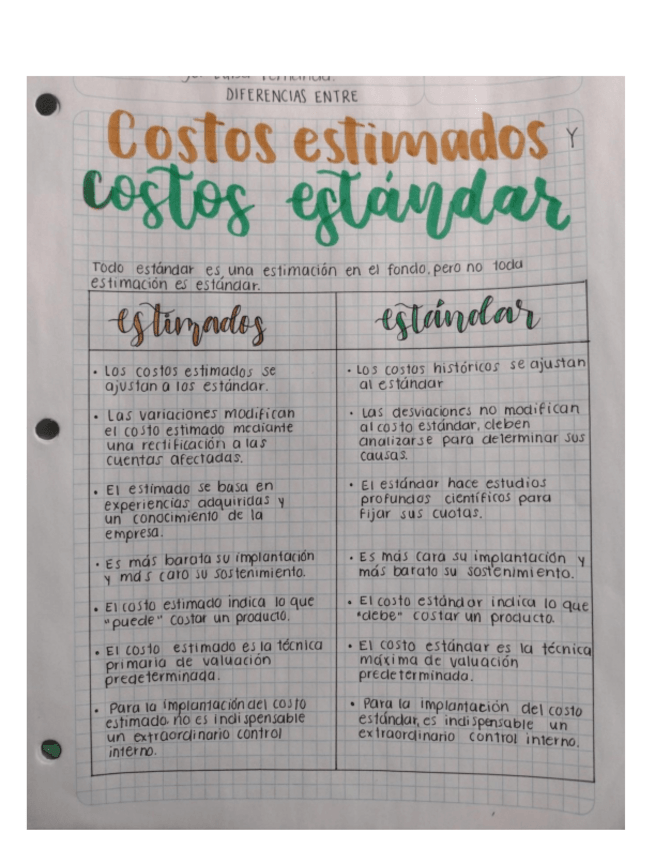 DIFERENCIAS ENTRE
Costos estimados y
costos estándar
Todo estándar es una estimación en el fondo, pero no toda
estimación es estándar.
estimados
• Los costos estimados se
ajustan a los estándar.
• Las variaciones modifican
el costo estimado mediante
una rectificación a las
cuentas afectadas.
• El estimado se basa en
experiencias adquiridas y
un conocimiento de la
empresa.
• Es más barata su implantación
y más caro su sostenimiento.
• El costo estimado indica lo que
"puede" costar un producto.
• El costo estimado es la técnica
primaria de valuación
predeterminada.
• Para la implantación del costo
estimado no es indispensable
un extraordinario control
interno.
estándar
• Los costos históricos se ajustan
al estándar
• Las desviaciones no modifican
al costo estándar, deben
analizarse para determinar sus
causas.
• El estándar hace estudios
profundos científicos para
fijar sus cuotas.
• Es más cara su implantación y
más barato su sostenimiento.
• El costo estándar indica lo que
"debe" costar un producto.
• El costo estándar es la técnica
máxima de valuación
predeterminada.
• Para la implantación del costo
estándar, es indispensable un
extraordinario control interno.